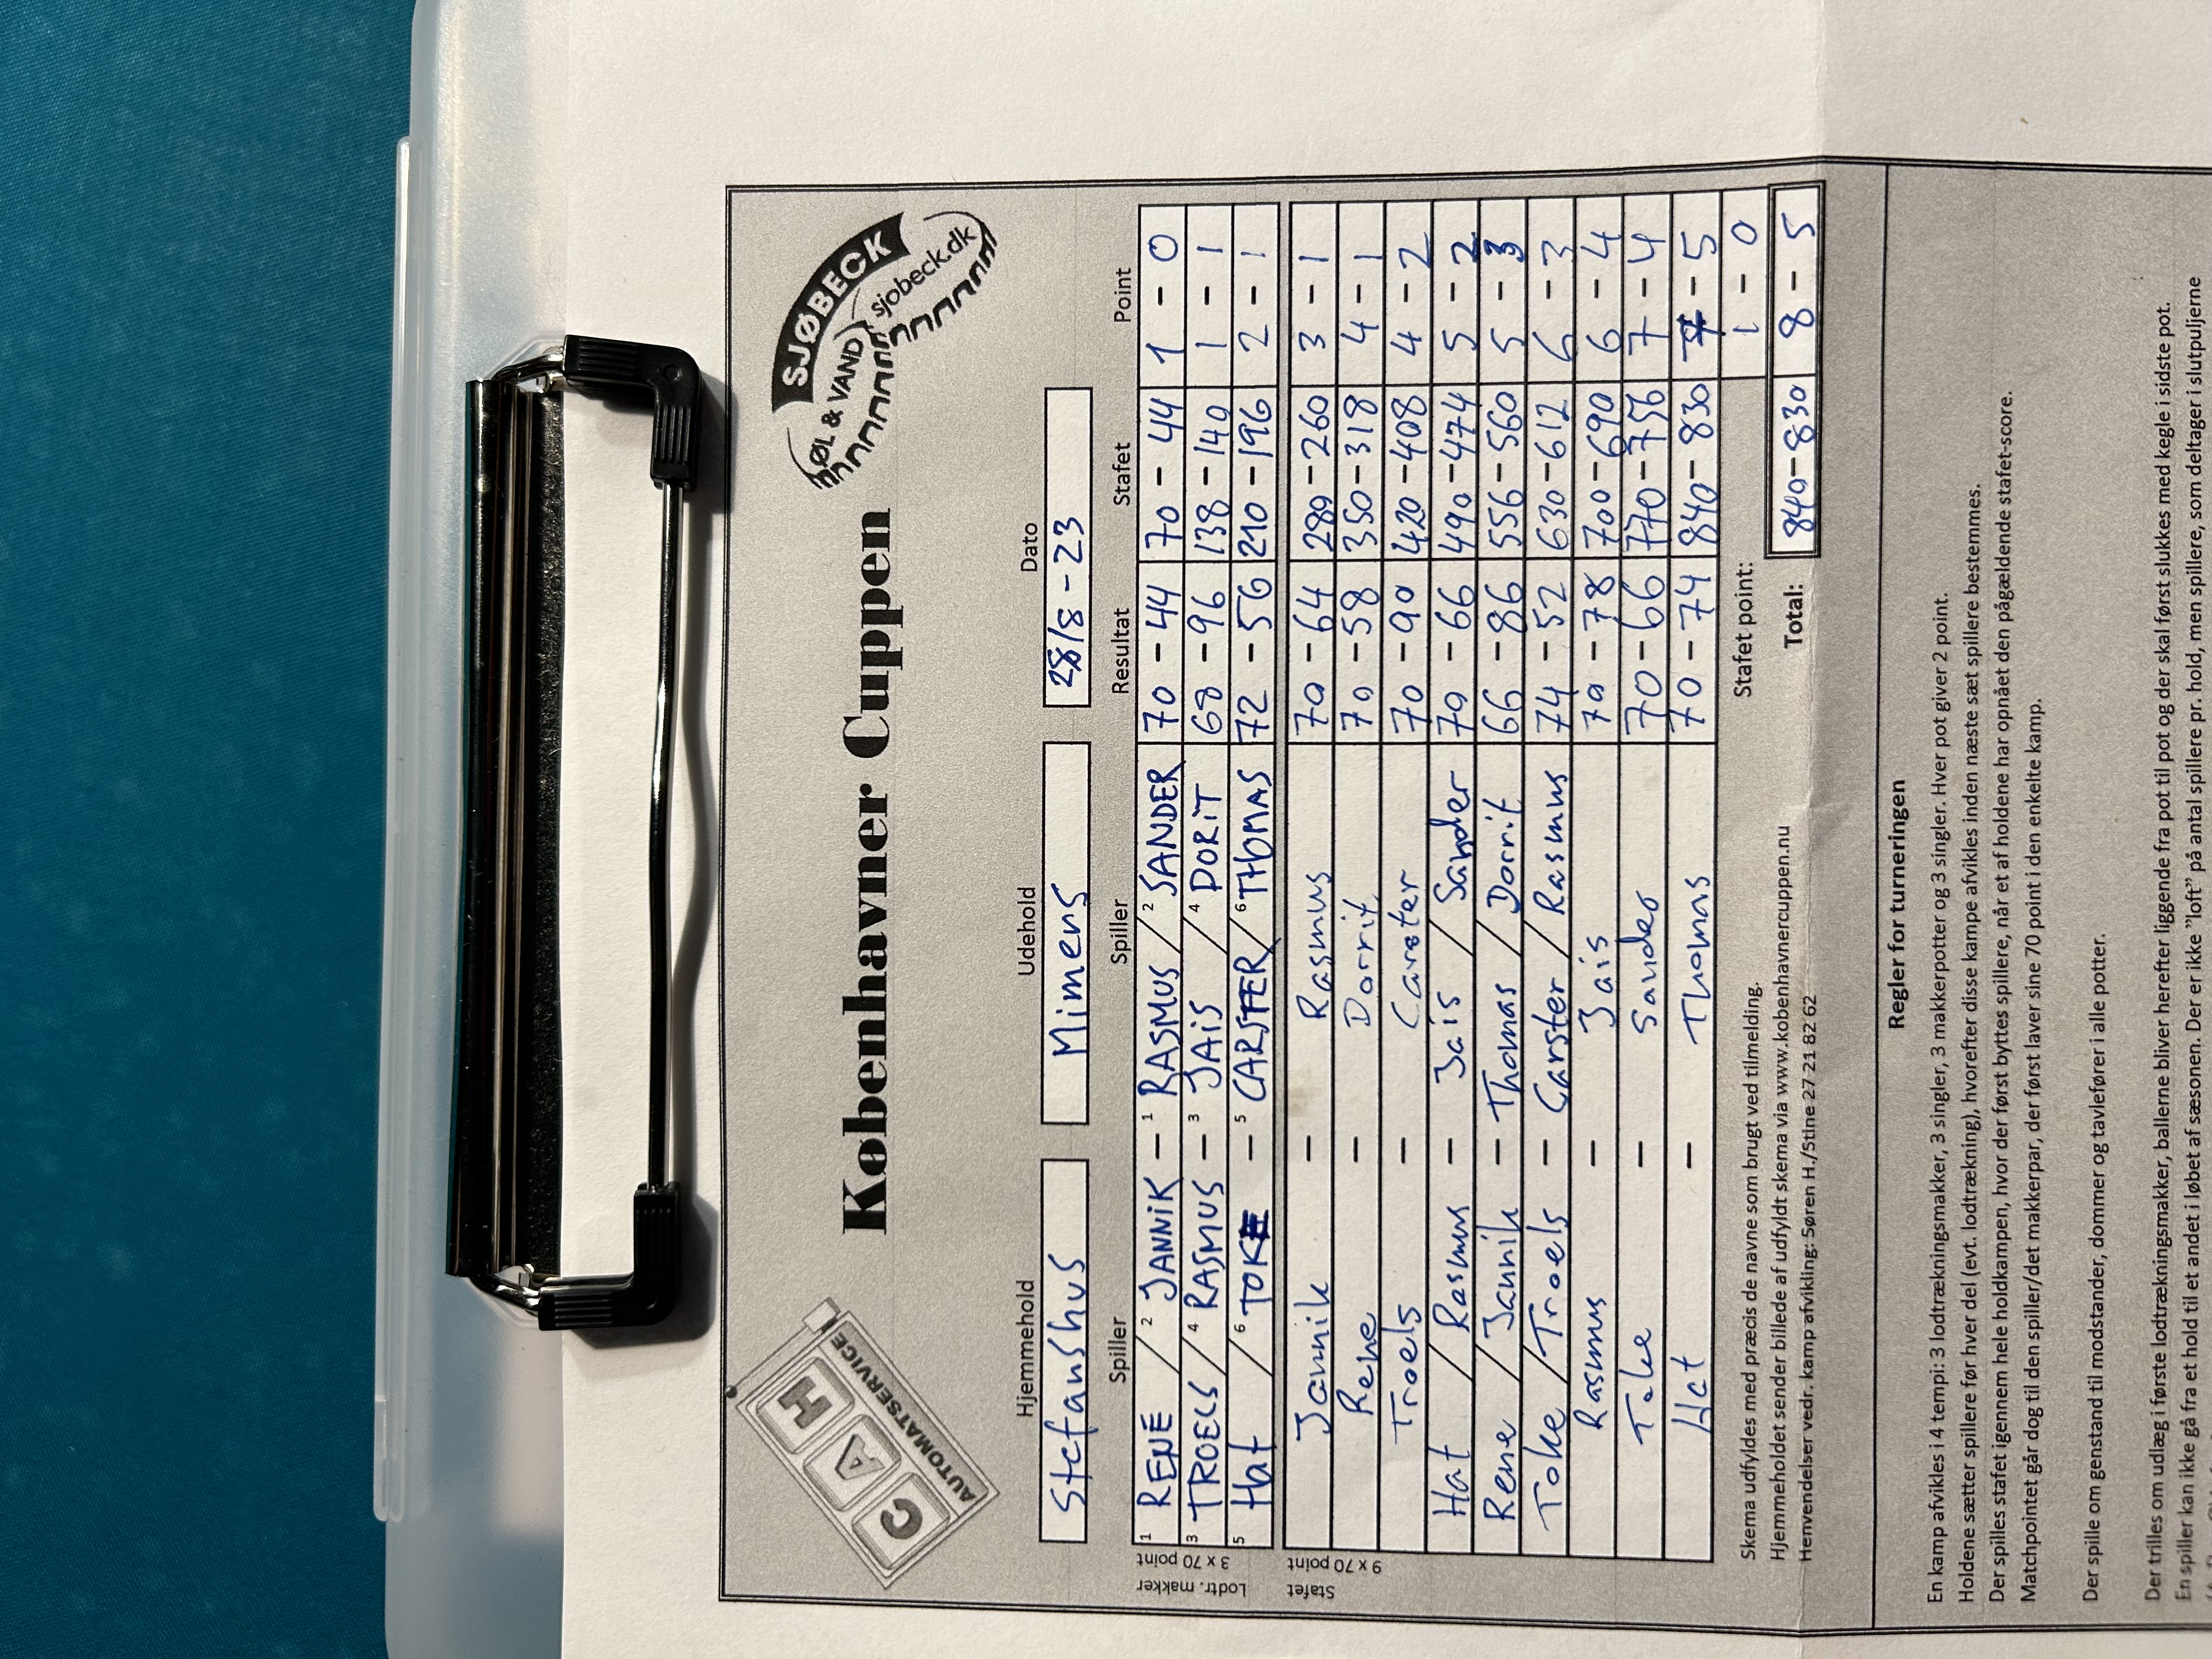 CAH
AUTOMATSERVICE
Københavner Cuppen
SJØBECK
ØL & VAND
sjobeck.dk
Hjemmehold Udehold Dato
Stefanshus Mimers 28/8-23
Spiller Spiller Resultat Stafet Point
Lodtr. makker
3 x 70 point
1 RENÉ / 2 JANNIK - 1 RASMUS / 2 SANDER 70 - 44 70 - 44 1 - 0
3 TROELS / 4 RASMUS - 3 JAIS / 4 DORIT 68 - 96 138 - 140 1 - 1
5 Hat / 6 TOKE - 5 CARSTER / 6 THOMAS 72 - 56 210 - 196 2 - 1
Stafet
9 x 70 point
Jannik - Rasmus 70 - 64 280 - 260 3 - 1
Rene - Dorrit 70 - 58 350 - 318 4 - 1
Troels - Carster 70 - 90 420 - 408 4 - 2
Hat / Rasmus - Jais / Sander 70 - 66 490 - 474 5 - 2
Rene / Jannik - Thomas / Dorrit 66 - 86 556 - 560 5 - 3
Toke / Troels - Carster / Rasmus 74 - 52 630 - 612 6 - 3
Rasmus - Jais 70 - 78 700 - 690 6 - 4
Toke - Sander 70 - 66 770 - 756 7 - 4
Hat - Thomas 70 - 74 840 - 830 7 - 5
Skema udfyldes med præcis de navne som brugt ved tilmelding. Stafet point: 1 - 0
Hjemmeholdet sender billede af udfyldt skema via www.københavnercuppen.nu
Henvendelser vedr. kamp afvikling: Søren H./Stine 27 21 82 62 Total: 840-830 8 - 5
Regler for turneringen
En kamp afvikles i 4 tempi: 3 lodtrækningsmakker, 3 singler, 3 makkerpotter og 3 singler. Hver pot giver 2 point.
Holdene sætter spillere før hver del (evt. lodtrækning), hvorefter disse kampe afvikles inden næste sæt spillere bestemmes.
Der spilles stafet igennem hele holdkampen, hvor der først byttes spillere, når et af holdene har opnået den pågældende stafet-score.
Matchpointet går dog til den spiller/det makkerpar, der først laver sine 70 point i den enkelte kamp.
Der spille om genstand til modstander, dommer og tavlefører i alle potter.
Der trilles om udlæg i første lodtrækningsmakker, ballerne bliver herefter liggende fra pot til pot og der skal først slukkes med kegle i sidste pot.
En spiller kan ikke gå fra et hold til et andet i løbet af sæsonen. Der er ikke "loft" på antal spillere pr. hold, men spillere, som deltager i slutpuljerne